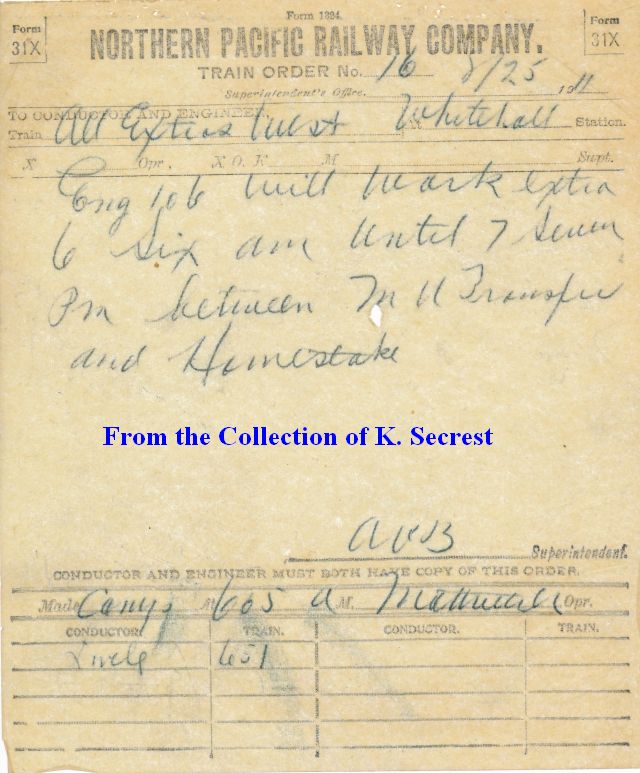 Form 1394.
Form 31X
Form 31X
NORTHERN PACIFIC RAILWAY COMPANY.
TRAIN ORDER No. 16 8/25 1911
Superintendent's Office.
TO CONDUCTOR AND ENGINEER,
Train All Extras West At Whitehall Station.
X Opr, X O. K M Supt.
Eng 106 will work extra
6 six am until 7 seven
Pm between M U Transfer
and Homestake
From the Collection of K. Secrest
Superintendent.
CONDUCTOR AND ENGINEER MUST BOTH HAVE COPY OF THIS ORDER.
Made Comp At 605 a M. Opr.
CONDUCTOR. TRAIN. CONDUCTOR. TRAIN.
651